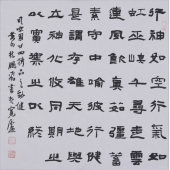 行神如空行氣如
虹巫峽千尋走雲
連風飲真茹強蓄
素守中喻彼行健
是謂存雄天地與
立神化攸同期之
以實御之以終
司空圖廿四詩品之勁健